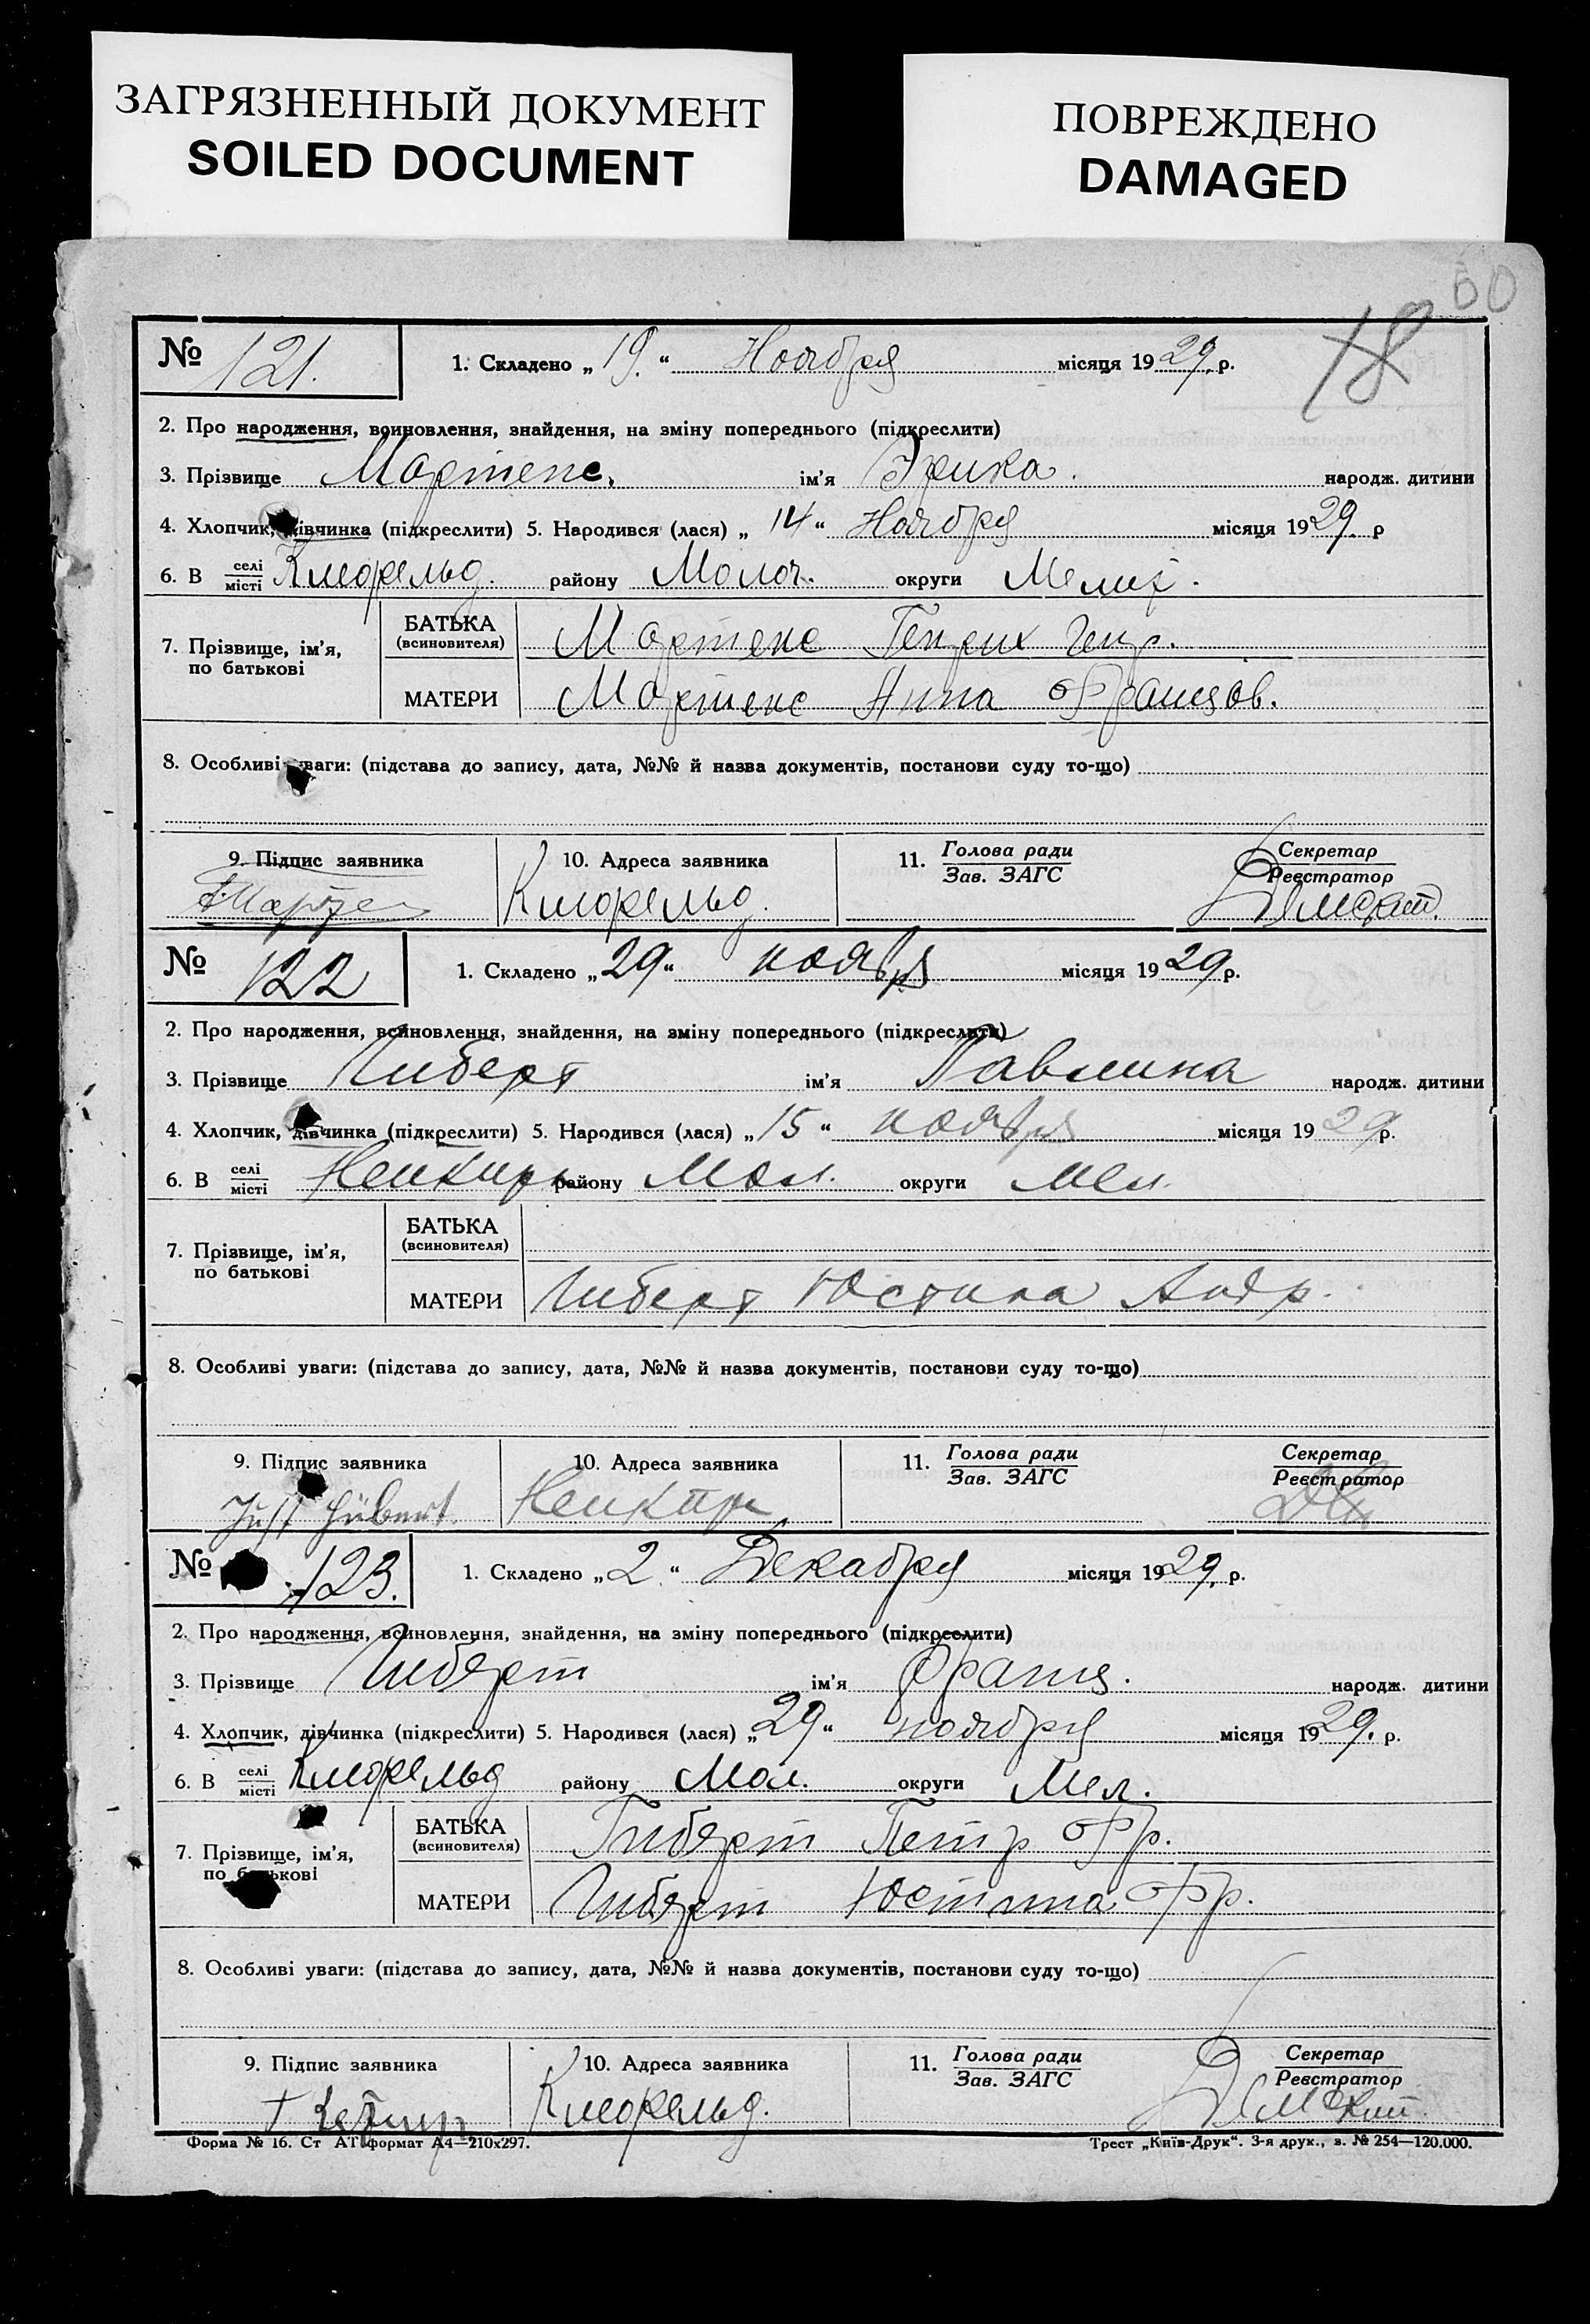 ЗАГРЯЗНЕННЫЙ ДОКУМЕНТ
SOILED DOCUMENT
ПОВРЕЖДЕНО
DAMAGED
60
18
№ 121. 1. Складено „19.“ Ноября місяця 1929. р.
2. Про народження, воиновлення, знайдення, на зміну попереднього (підкреслити)
3. Прізвище Мартенс. ім'я Эрика. народж. дитини
4. Хлопчик, дівчинка (підкреслити) 5. Народився (лася) „14“ Ноября місяця 1929. р
6. В селі місті Клефельд. району Молоч. округи Мелит.
7. Прізвище, ім'я, по батькові
БАТЬКА (всиновителя) Мартенс Генрих Генр.
МАТЕРИ Мартенс Анна Францов.
8. Особливі уваги: (підстава до запису, дата, №№ й назва документів, постанови суду то-що)
9. Підпис заявника 10. Адреса заявника 11. Голова ради Зав. ЗАГС Секретар Реєстратор
Клефельд.
№ 122 1. Складено „29“ ноября місяця 1929 р.
2. Про народження, всиновлення, знайдення, на зміну попереднього (підкреслити)
3. Прізвище Гиберт ім'я Павлина народж. дитини
4. Хлопчик, дівчинка (підкреслити) 5. Народився (лася) „15“ ноября місяця 1929 р.
6. В селі місті Нейкирх району Мол. округи Мел.
7. Прізвище, ім'я, по батькові
БАТЬКА (всиновителя)
МАТЕРИ Гиберт Юстина Андр.
8. Особливі уваги: (підстава до запису, дата, №№ й назва документів, постанови суду то-що)
9. Підпис заявника 10. Адреса заявника 11. Голова ради Зав. ЗАГС Секретар Реєстратор
Just Hübert. Нейкирх
№ 123. 1. Складено „2.“ Декабря місяця 1929. р.
2. Про народження, всиновлення, знайдення, на зміну попереднього (підкреслити)
3. Прізвище Гиберт ім'я Франц. народж. дитини
4. Хлопчик, дівчинка (підкреслити) 5. Народився (лася) „29“ ноября місяця 1929. р.
6. В селі місті Клефельд району Мол. округи Мел.
7. Прізвище, ім'я, по батькові
БАТЬКА (всиновителя) Гиберт Петр Фр.
МАТЕРИ Гиберт Юстина Фр.
8. Особливі уваги: (підстава до запису, дата, №№ й назва документів, постанови суду то-що)
9. Підпис заявника 10. Адреса заявника 11. Голова ради Зав. ЗАГС Секретар Реєстратор
Клефельд.
Форма № 16. Ст АТ формат А4—210х297.
Трест „Київ-Друк“. 3-я друк., з. № 254—120.000.